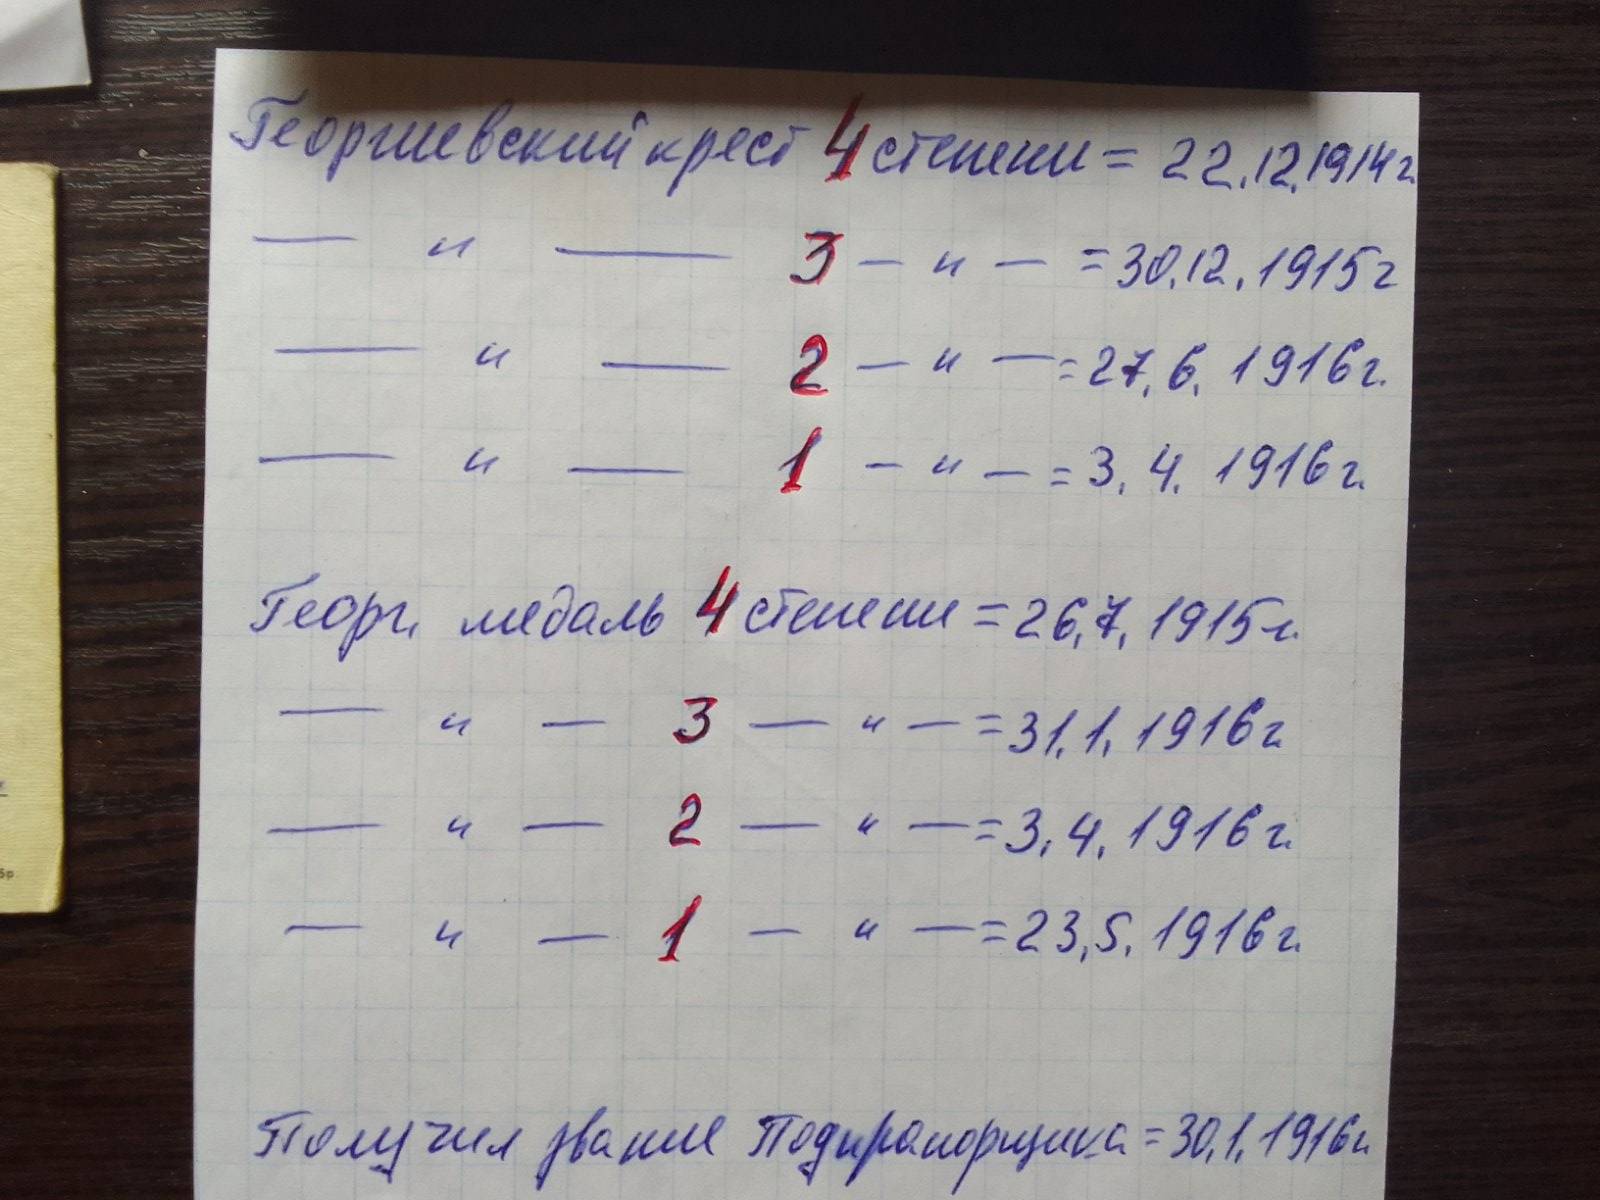 Георгиевский крест 4 степени = 22.12.1914г.
— " — 3 — " — = 30.12.1915г
— " — 2 — " — = 27.6.1916г.
— " — 1 — " — = 3.4.1916г.
Георг. медаль 4 степени = 26.7.1915г.
— " — 3 — " — = 31.1.1916г.
— " — 2 — " — = 3.4.1916г.
— " — 1 — " — = 23.5.1916г.
Получил звание Подпрапорщика = 30.1.1916г